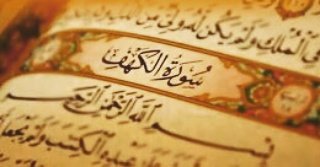 فِي الْمُلْكِ وَلَمْ يَكُن لَّهُ وَلِيٌّ مِّنَ
سُورَةُ الْكَهْفِ
بِسْمِ اللَّهِ الرَّحْمَٰنِ الرَّحِيمِ
عَبْدِهِ الْكِتَٰبَ وَلَمْ يَجْعَل